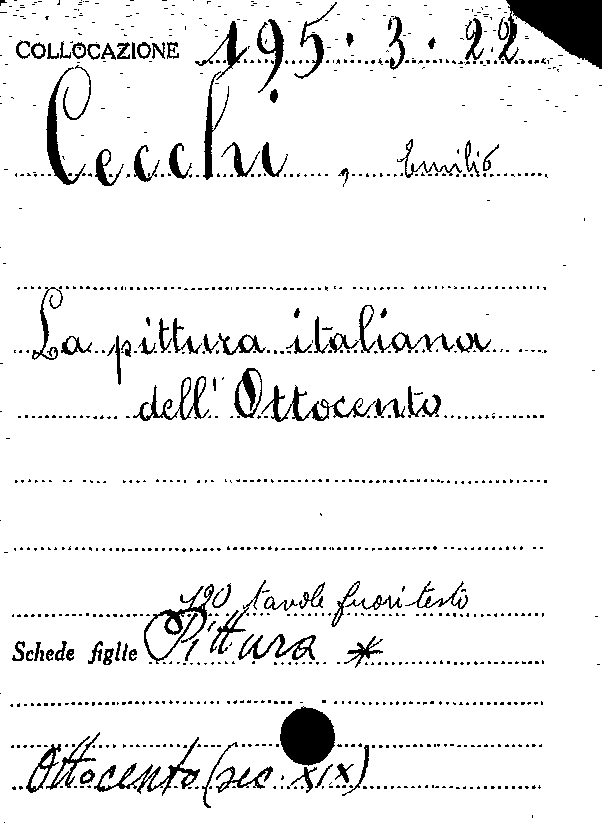 COLLOCAZIONE 195.3.22
Cecchi, Emilio
La pittura italiana
dell'Ottocento
120 tavole fuori testo
Schede figlie Pittura *
Ottocento (sec. XIX)